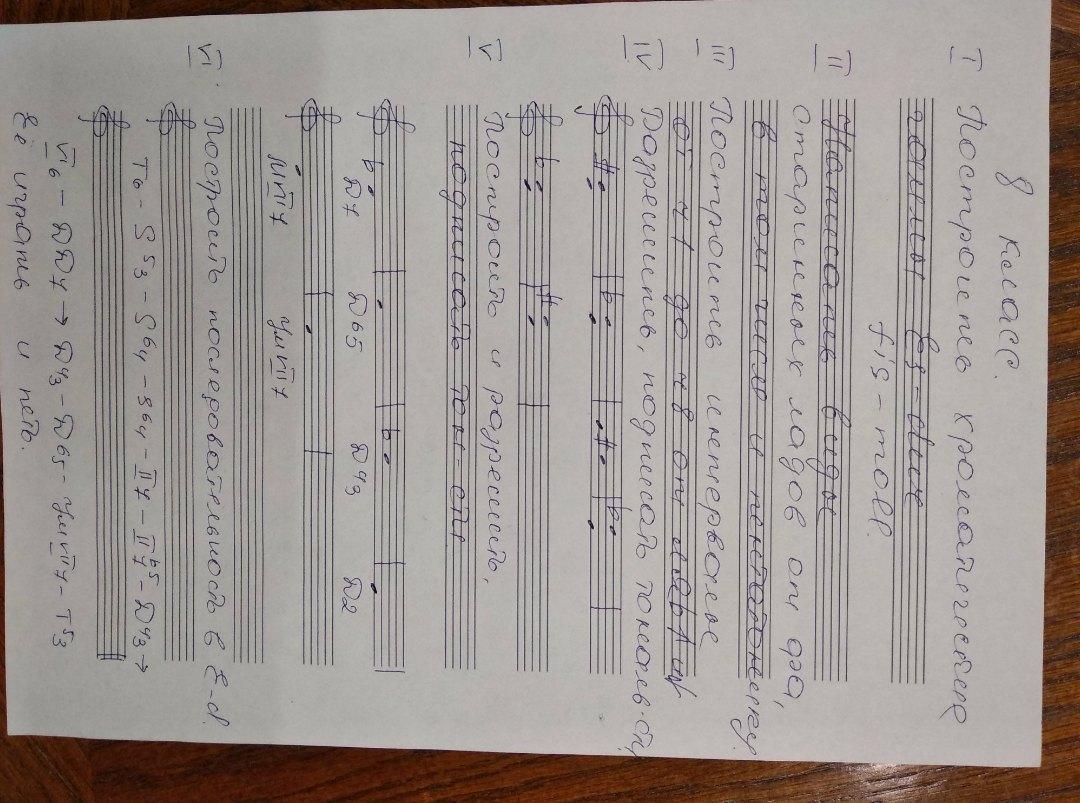 8 класс.
I Построить хроматические
гаммы Es-dur
fis-moll.
II Написать виды
старинных ладов от фа,
в том числе и пентатонику.
III Построить интервалы
от ч1 до ч8 от
IV Разрешить, подписать тональ-сти
V Построить и разрешить,
подписать тон-сти
D7 D65 D43 D2
МVII7 умVII7
VI. Построить последовательность в E-d.
T6 - S53 - S64 - s64 - II7 - II7b5 - D43 →
VI6 - DD7 → D43 - D65 - умVII7 - T53
Её играть и петь.